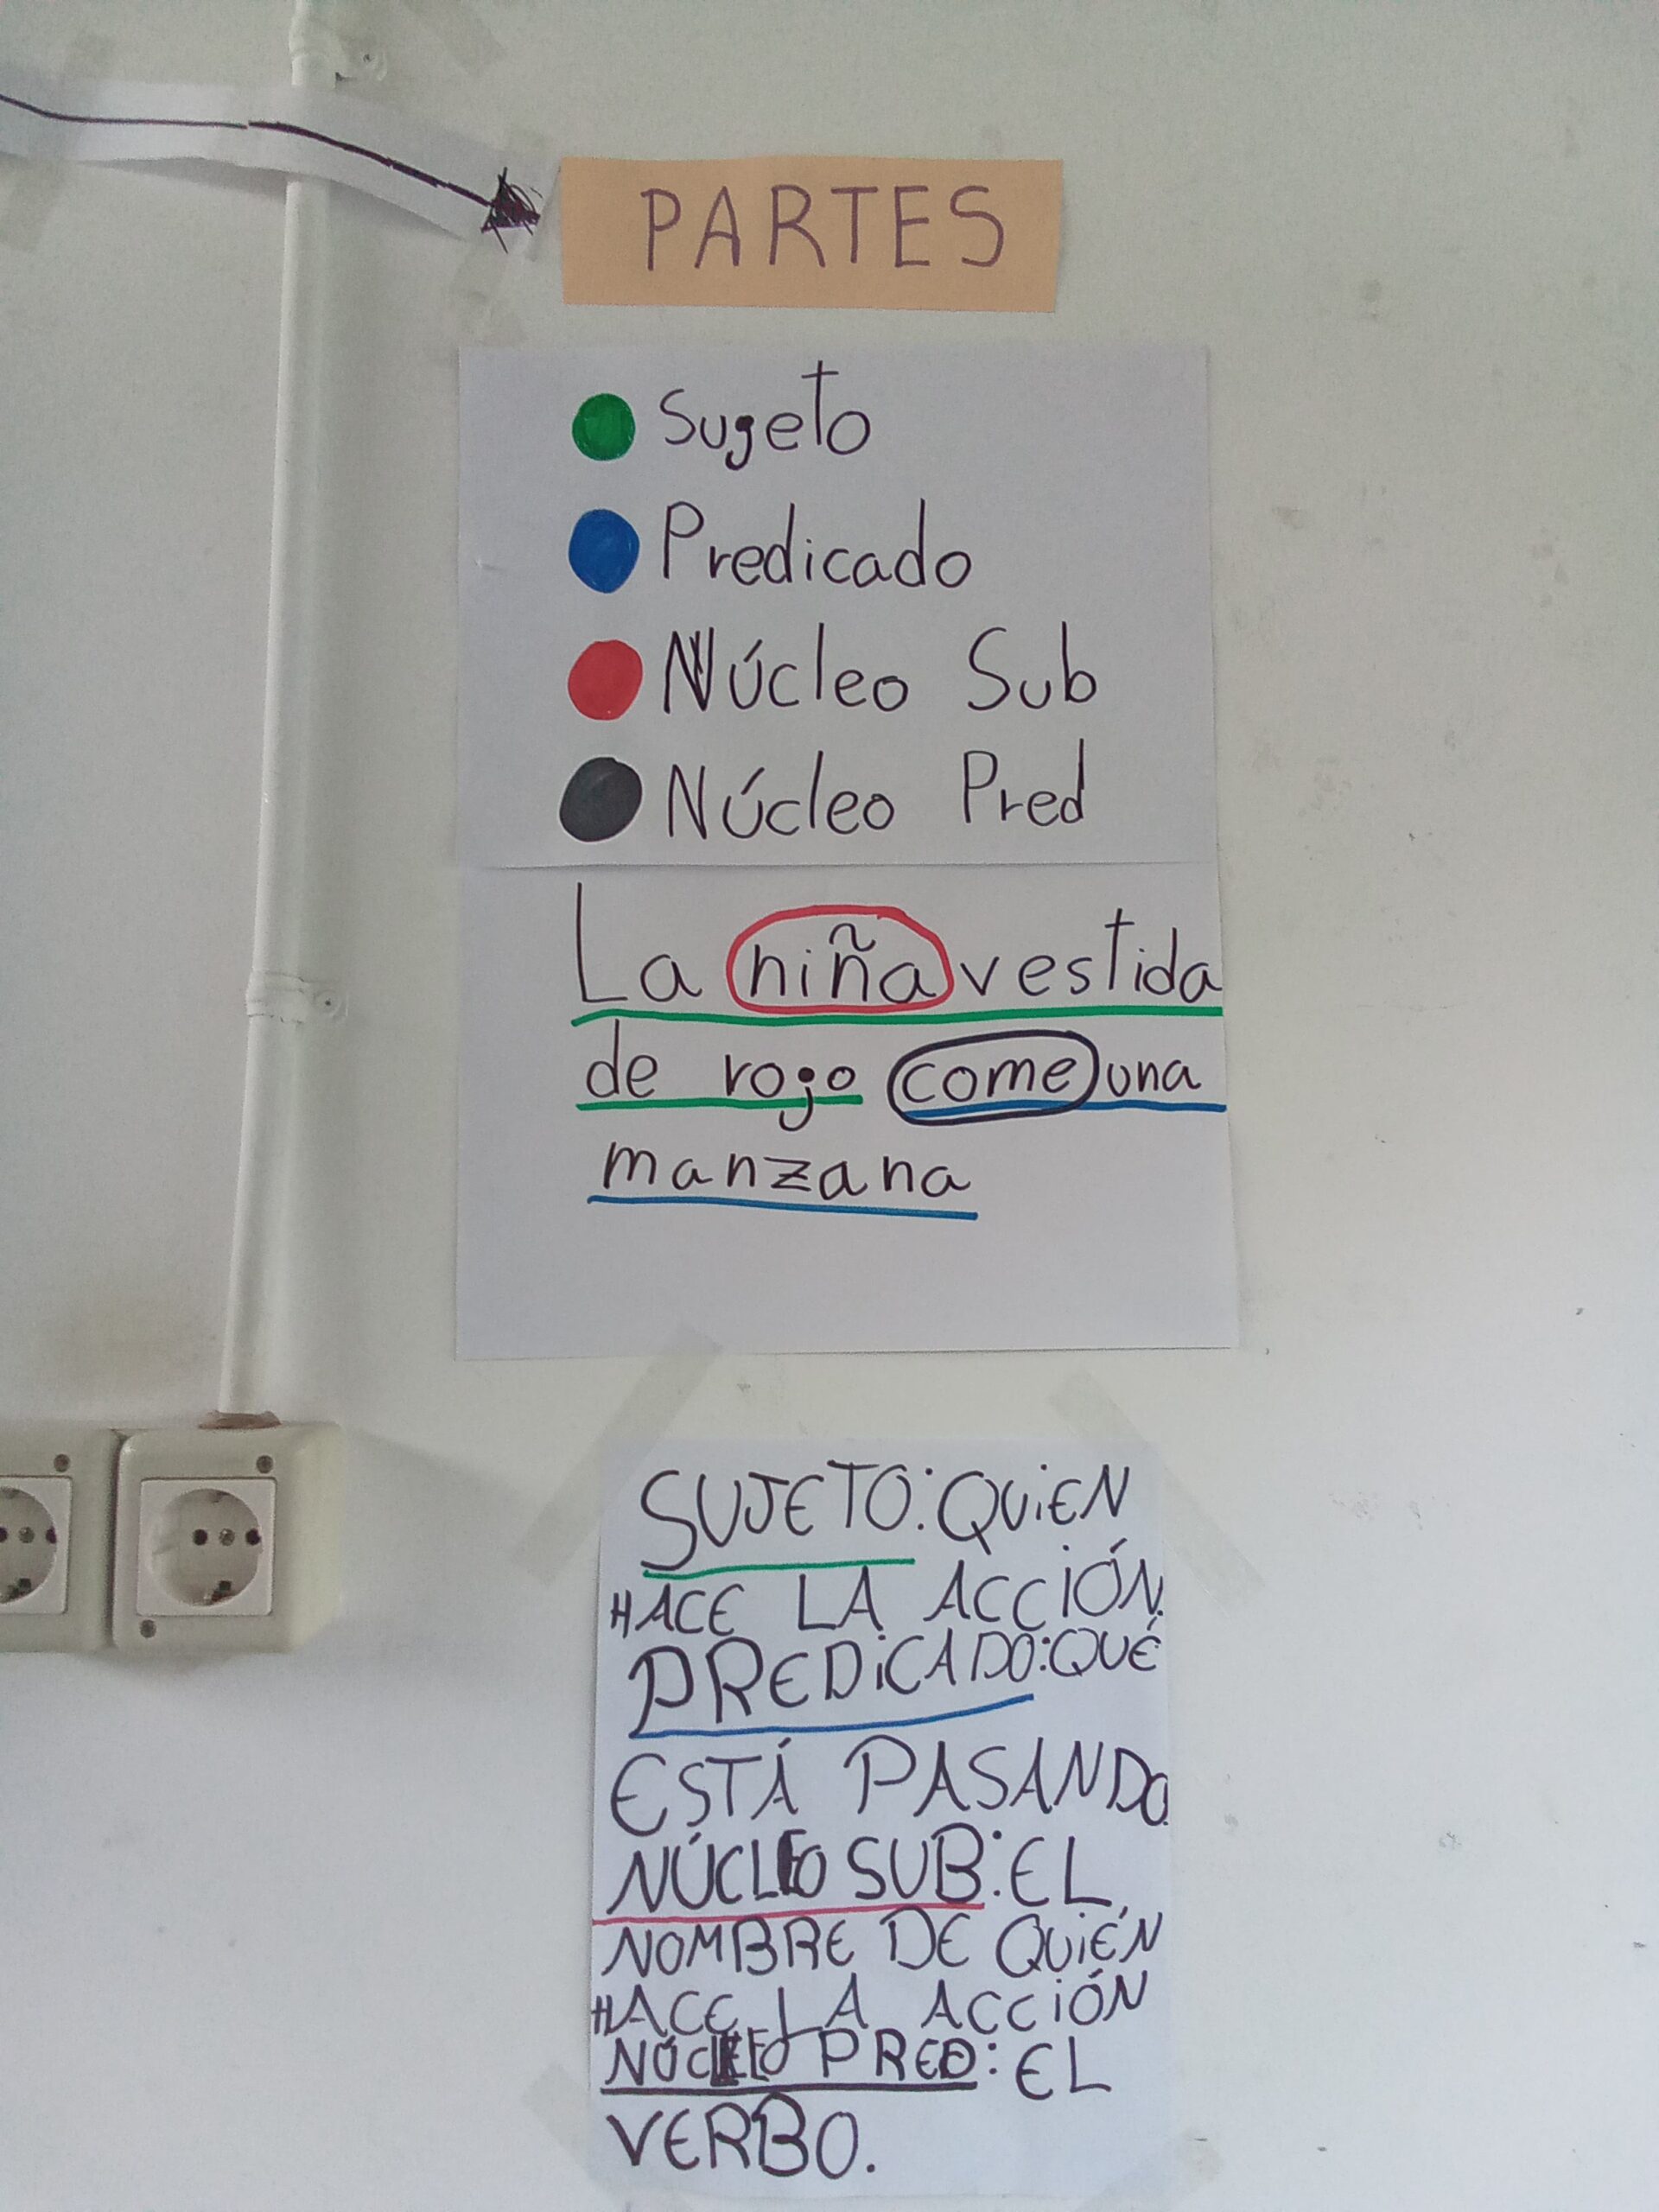 PARTES
Sugeto
Predicado
Núcleo Sub
Núcleo Pred
La niña vestida
de rojo come una
manzana
SUJETO: QUiEN
HACE LA ACCIÓN.
PREDiCADO: QUÉ
ESTÁ PASANDO.
NÚCLEO SUB: EL
NOMBRE DE QUiÉN
HACE LA ACCiÓN
NÚCLEO PRED: EL
VERBO.